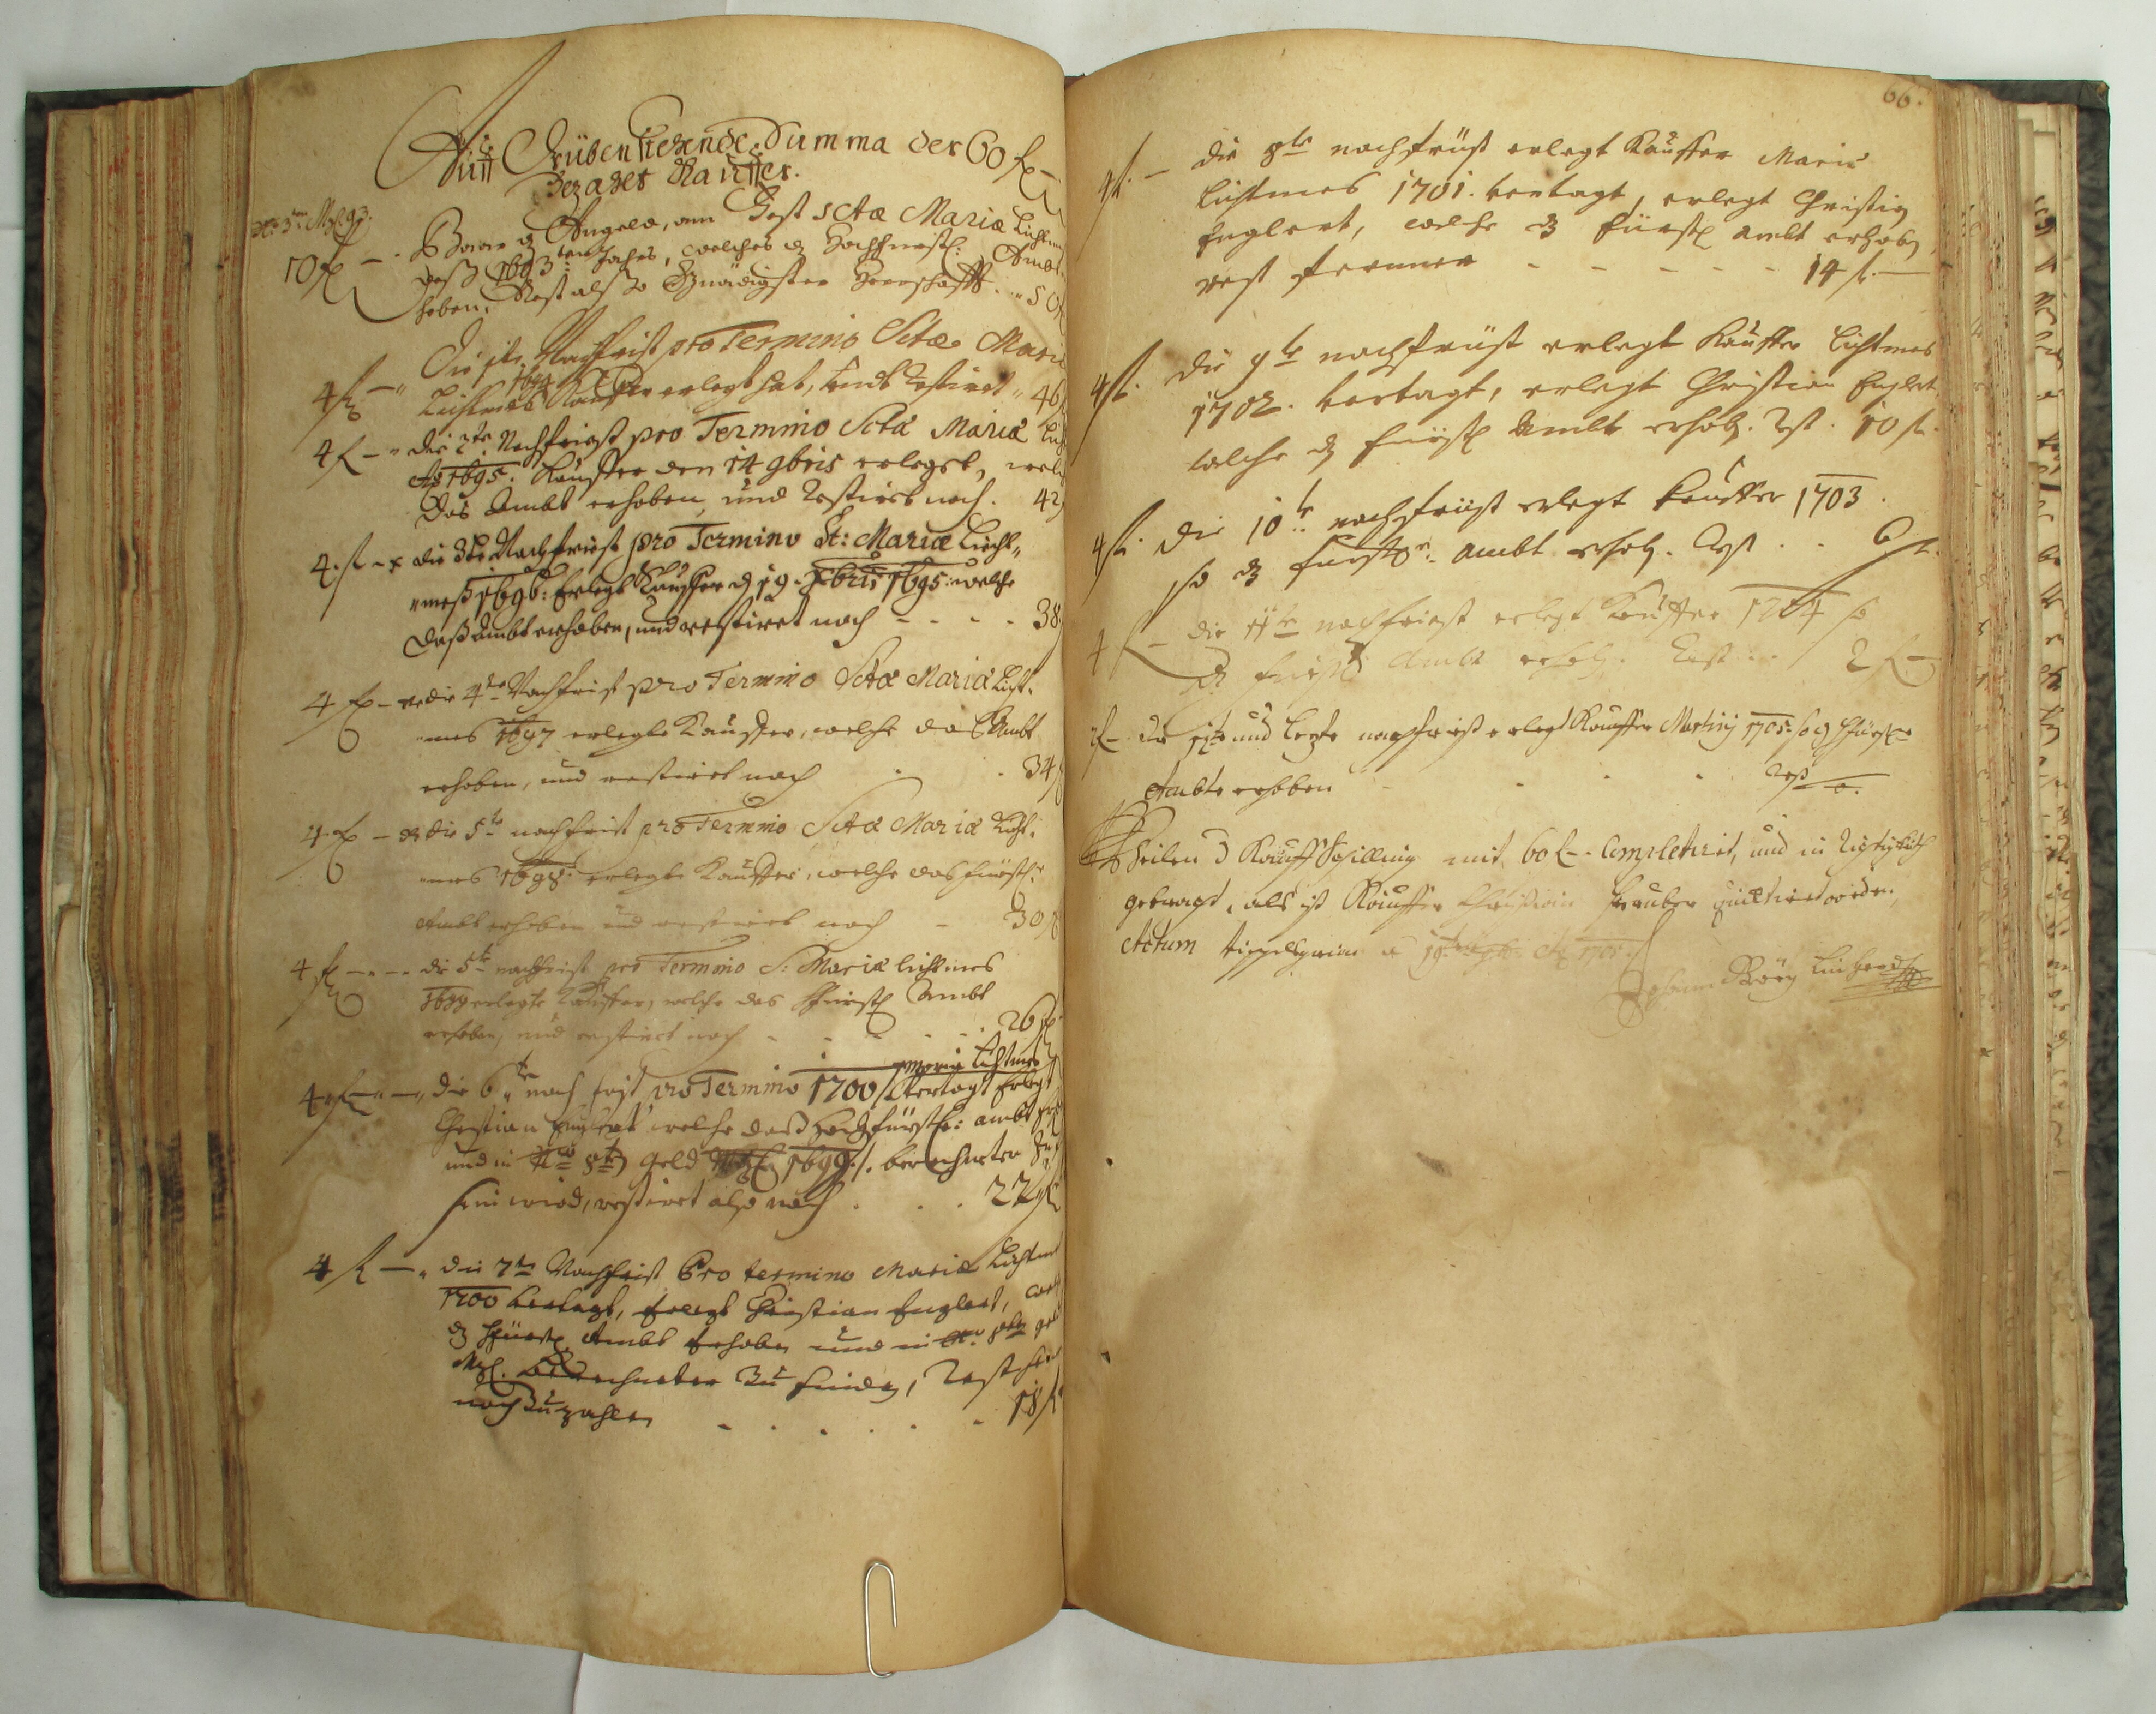 Auff Drüben stehende Summa der 60 f
bezahlt Kauffer.
10 f — Baar Angeld, am Fest Sctae Mariae Lichtm
deß 1693 ten Jahrs, welches Hochfürstl: Ambt
hoben, Rest alß Gnädigster Herrschafft . . 50
Die 1te Nachfrist pro Termino Sctae Mariæ
4 f — Lichtmes 1694 Kauffer erlegt hat, undt Restiret 46
4 f — die 2te Nachfrist pro Termino Sctæ Mariæ
Ao 1695. Kauffer den 14 9bris erleget, welch
das Ambt erhoben, und Restiret noch. 42
4. f — die 3te Nachfrist pro Termino St: Mariæ Liecht-
meß 1696: Erlegt Kauffer d 19. Xbris 1695: welche
daß Ambt erhoben, und restiret noch - - - - 38
4 f — die 4te Nachfrist pro Termino Sctæ Mariæ Licht-
mes 1697 erlegte Kauffer, welche das Ambt
erhoben, und restiret noch . . 34
4 f — die 5te nachfrist pro Termino Sctæ Mariæ Licht-
mes 1698: erlegte Kauffer, welche das fürstl:
Ambt erhoben und restiret noch - 30 f
4 f — die 5te nachfrist pro Termino S: Mariæ lichtmes
1699 erlegte Kauffer, welche das Fürstl Ambt
erhoben, und restiret noch - - - 26 f
Maria Lichtmes
4 f — die 6te nach frist pro Termino 1700 / vertagt Erlegt
Christian Englert welche daß hochfürstl: ambt
und in geld 1699 /. berechneter
sein wird, restiret also noch . . . 22 f
4 f — die 7te Nachfrist Pro termino Mariæ Lichtm
1700 vertagt, Erlegt Christian Englert,
d Fürstl. Ambt Erhoben und in
berechneter zu finden, Rest
noch zu zahlen - . . . . - 18 f
66.
4 f. — die 8te nachfrüst erlegt Kauffer Mariæ
Lichtmes 1701. vertagt, erlegt Christian
Englert, welche d fürstl ambt erhoben,
rest ferner - - - - - 14 f. —
4 f. die 9te nachfrüst erlegt Kauffer lichtmes
1702. vertagt, erlegt Christian Englert
welche d fürstl Ambt erhob. Rst. 10 f.
4 f. die 10te nachfrüst erlegt Kauffer 1703.
so d fürstl. ambt erhob. Rest . . 6 f.
4 f — die 11te nachfrist erlegt Kauffer 1704 so
d fürstl Ambt erhob. Rest . . . 2 f —
2 f — die 12te und lezte nachfrist erlegt Kauffer Martinj 1705: so
Ambte erhoben - . . . Rest 0.
Weilen d Kauff Schilling mit 60 f — Completiret, und in Richtigkeit
gebracht, als ist Kauffer Christian quittiret worden,
Actum 19. 1705.
Johann Görg